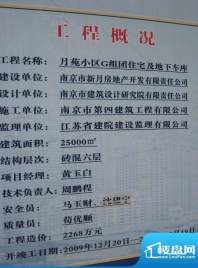 工程概况
工程名称: 月苑小区G组团住宅及地下车库
建设单位: 南京市新月房地产开发有限责任公司
设计单位: 南京市建筑设计研究院有限责任公司
施工单位: 南京市第四建筑工程有限公司
监理单位: 江苏省建院建设监理有限公司
建筑面积: 25000㎡
结构层次: 砖混六层
项目经理: 黄玉白
技术负责人: 周鹏程
安全员: 马玉财、
质量员: 荀优顺
工程造价: 2268万元
开竣工日期: 2009年12月20日一
楼盘网